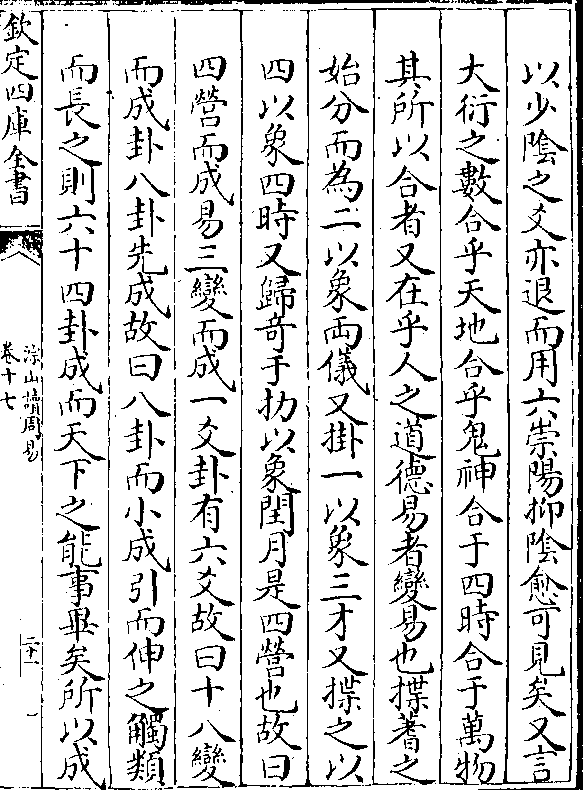 以少陰之爻亦退而用六崇陽抑陰愈可見矣又言
大衍之數合乎天地合乎鬼神合于四時合于萬物
其所以合者又在乎人之道德易者變易也揲蓍之
始分而為二以象兩儀又掛一以象三才又揲之以
四以象四時又歸奇于扐以象閏月是四營也故曰
四營而成易三變而成一爻卦有六爻故曰十八變
而成卦八卦先成故曰八卦而小成引而伸之觸類
而長之則六十四卦成而天下之能事畢矣所以成
欽定四庫全書
淙山讀周易
卷十七